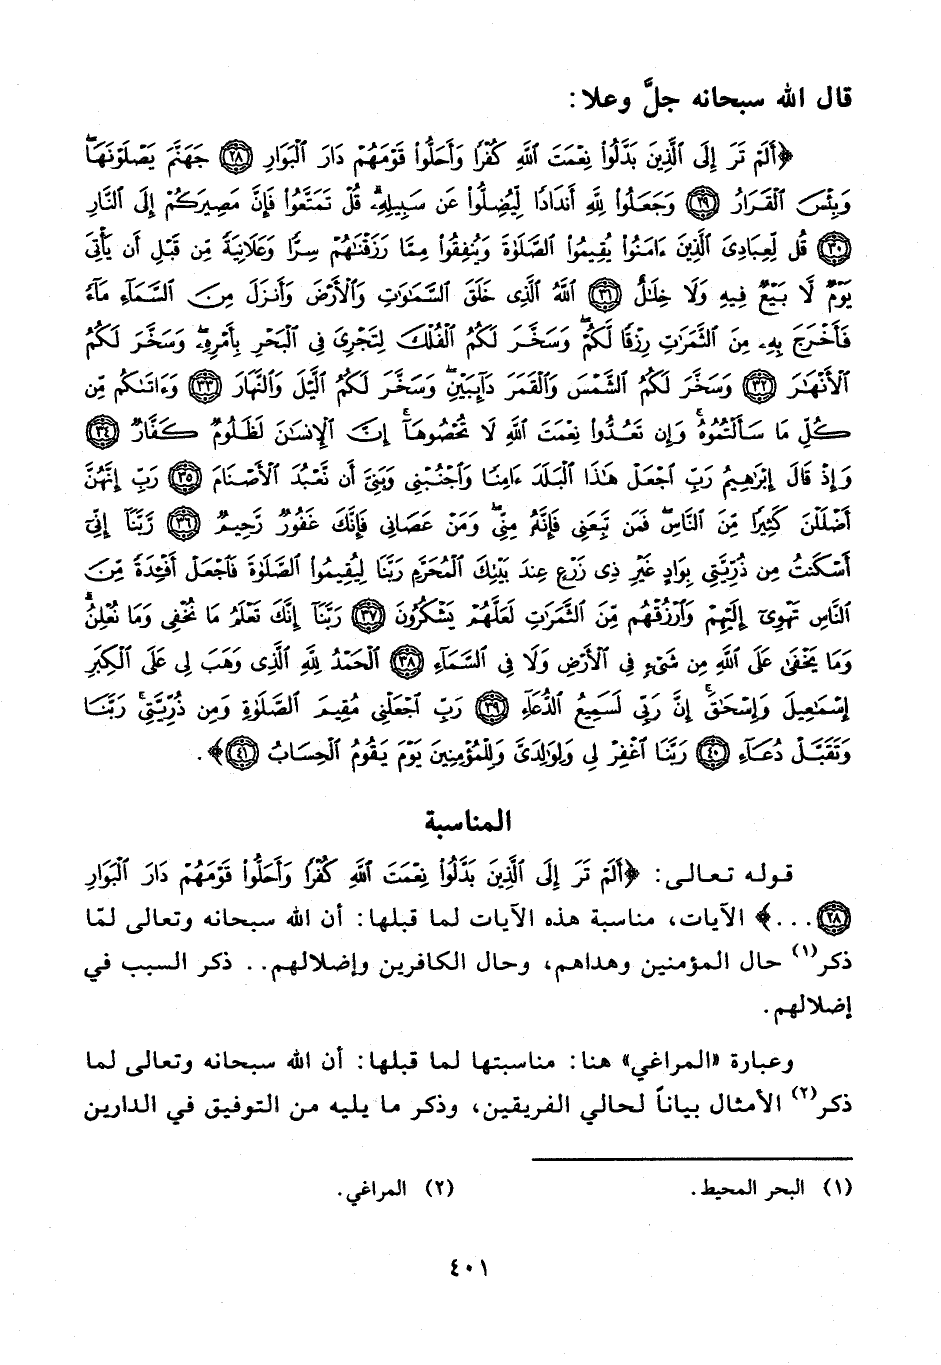 قال الله سبحانه جلَّ وعلا:
﴿أَلَمْ تَرَ إِلَى ٱلَّذِينَ بَدَّلُوا۟ نِعْمَتَ ٱللَّهِ كُفْرًا وَأَحَلُّوا۟ قَوْمَهُمْ دَارَ ٱلْبَوَارِ ٢٨ جَهَنَّمَ يَصْلَوْنَهَا ۖ
وَبِئْسَ ٱلْقَرَارُ ٢٩ وَجَعَلُوا۟ لِلَّهِ أَندَادًا لِّيُضِلُّوا۟ عَن سَبِيلِهِۦ ۗ قُلْ تَمَتَّعُوا۟ فَإِنَّ مَصِيرَكُمْ إِلَى ٱلنَّارِ
٣٠ قُل لِّعِبَادِىَ ٱلَّذِينَ ءَامَنُوا۟ يُقِيمُوا۟ ٱلصَّلَوٰةَ وَيُنفِقُوا۟ مِمَّا رَزَقْنَٰهُمْ سِرًّا وَعَلَانِيَةً مِّن قَبْلِ أَن يَأْتِىَ
يَوْمٌ لَّا بَيْعٌ فِيهِ وَلَا خِلَٰلٌ ٣١ ٱللَّهُ ٱلَّذِى خَلَقَ ٱلسَّمَٰوَٰتِ وَٱلْأَرْضَ وَأَنزَلَ مِنَ ٱلسَّمَآءِ مَآءً
فَأَخْرَجَ بِهِۦ مِنَ ٱلثَّمَرَٰتِ رِزْقًا لَّكُمْ ۖ وَسَخَّرَ لَكُمُ ٱلْفُلْكَ لِتَجْرِىَ فِى ٱلْبَحْرِ بِأَمْرِهِۦ ۖ وَسَخَّرَ لَكُمُ
ٱلْأَنْهَٰرَ ٣٢ وَسَخَّرَ لَكُمُ ٱلشَّمْسَ وَٱلْقَمَرَ دَآئِبَيْنِ ۖ وَسَخَّرَ لَكُمُ ٱلَّيْلَ وَٱلنَّهَارَ ٣٣ وَءَاتَىٰكُم مِّن
كُلِّ مَا سَأَلْتُمُوهُ ۚ وَإِن تَعُدُّوا۟ نِعْمَتَ ٱللَّهِ لَا تُحْصُوهَآ ۗ إِنَّ ٱلْإِنسَٰنَ لَظَلُومٌ كَفَّارٌ ٣٤
وَإِذْ قَالَ إِبْرَٰهِيمُ رَبِّ ٱجْعَلْ هَٰذَا ٱلْبَلَدَ ءَامِنًا وَٱجْنُبْنِى وَبَنِىَّ أَن نَّعْبُدَ ٱلْأَصْنَامَ ٣٥ رَبِّ إِنَّهُنَّ
أَضْلَلْنَ كَثِيرًا مِّنَ ٱلنَّاسِ ۖ فَمَن تَبِعَنِى فَإِنَّهُۥ مِنِّى ۖ وَمَنْ عَصَانِى فَإِنَّكَ غَفُورٌ رَّحِيمٌ ٣٦ رَّبَّنَآ إِنِّىٓ
أَسْكَنتُ مِن ذُرِّيَّتِى بِوَادٍ غَيْرِ ذِى زَرْعٍ عِندَ بَيْتِكَ ٱلْمُحَرَّمِ رَبَّنَا لِيُقِيمُوا۟ ٱلصَّلَوٰةَ فَٱجْعَلْ أَفْـِٔدَةً مِّنَ
ٱلنَّاسِ تَهْوِىٓ إِلَيْهِمْ وَٱرْزُقْهُم مِّنَ ٱلثَّمَرَٰتِ لَعَلَّهُمْ يَشْكُرُونَ ٣٧ رَبَّنَآ إِنَّكَ تَعْلَمُ مَا نُخْفِى وَمَا نُعْلِنُ ۗ
وَمَا يَخْفَىٰ عَلَى ٱللَّهِ مِن شَىْءٍ فِى ٱلْأَرْضِ وَلَا فِى ٱلسَّمَآءِ ٣٨ ٱلْحَمْدُ لِلَّهِ ٱلَّذِى وَهَبَ لِى عَلَى ٱلْكِبَرِ
إِسْمَٰعِيلَ وَإِسْحَٰقَ ۚ إِنَّ رَبِّى لَسَمِيعُ ٱلدُّعَآءِ ٣٩ رَبِّ ٱجْعَلْنِى مُقِيمَ ٱلصَّلَوٰةِ وَمِن ذُرِّيَّتِى ۚ رَبَّنَا
وَتَقَبَّلْ دُعَآءِ ٤٠ رَبَّنَا ٱغْفِرْ لِى وَلِوَٰلِدَىَّ وَلِلْمُؤْمِنِينَ يَوْمَ يَقُومُ ٱلْحِسَابُ ٤١﴾.
المناسبة
قوله تعالى: ﴿أَلَمْ تَرَ إِلَى ٱلَّذِينَ بَدَّلُوا۟ نِعْمَتَ ٱللَّهِ كُفْرًا وَأَحَلُّوا۟ قَوْمَهُمْ دَارَ ٱلْبَوَارِ
٢٨...﴾ الآيات، مناسبة هذه الآيات لما قبلها: أن الله سبحانه وتعالى لمّا
ذكر(١) حال المؤمنين وهداهم، وحال الكافرين وإضلالهم.. ذكر السبب في
إضلالهم.
وعبارة «المراغي» هنا: مناسبتها لما قبلها: أن الله سبحانه وتعالى لما
ذكر(٢) الأمثال بياناً لحالي الفريقين، وذكر ما يليه من التوفيق في الدارين
(١) البحر المحيط. (٢) المراغي.
٤٠١